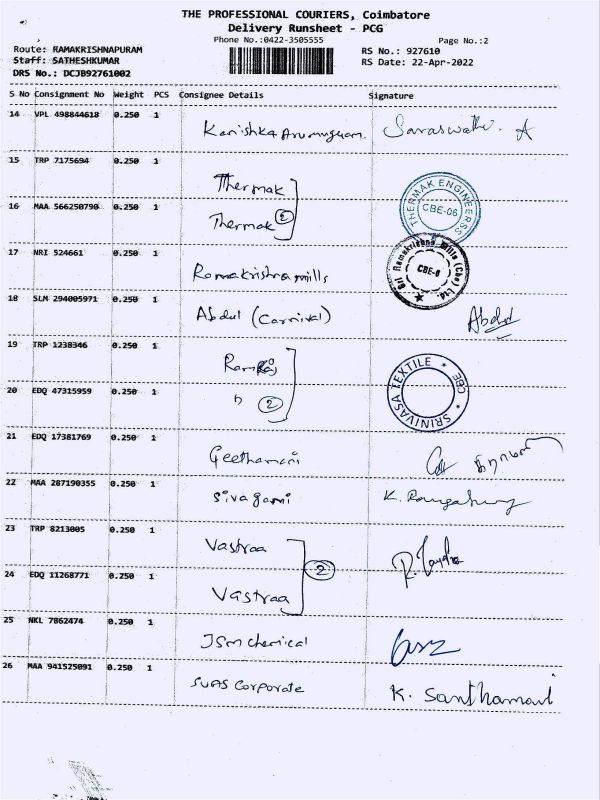 THE PROFESSIONAL COURIERS, Coimbatore
Delivery Runsheet - PCG
Phone No.:0422-3505555
Page No.:2
Route: RAMAKRISHNAPURAM
RS No.: 927610
Staff: SATHESHKUMAR
RS Date: 22-Apr-2022
DRS No.: DCJB92761002
S No Consignment No Weight PCS Consignee Details Signature
14 VPL 498844618 0.250 1 Kanishka Arumugam Saraswathi. A
15 TRP 7175694 0.250 1 Thermak
THERMAK ENGINEERSS
CBE-06
16 MAA 566250790 0.250 1 Thermak 2
17 NRI 524661 0.250 1 Ramakrishna mills
Sri Ramakrishna Mills (Cbe) Ltd.
CBE-6
18 SLM 294005971 0.250 1 Abdul (Carnival) Abdul
19 TRP 1238346 0.250 1
SRINIVASA TEXTILE CBE
20 EDQ 47315959 0.250 1 " 2
21 EDQ 17381769 0.250 1 Geethamani
22 MAA 287190355 0.250 1 Sivagami K.
23 TRP 8213005 0.250 1 Vastraa
2
24 EDQ 11268771 0.250 1 Vastraa
25 NKL 7862474 0.250 1 JSM chemical
26 MAA 941525091 0.250 1 SUAS Corporate K. Santhamani